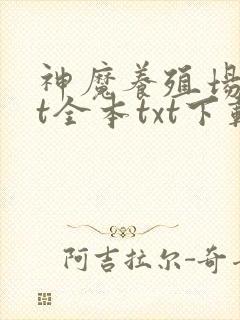 神魔养殖场
t全本txt下载
阿吉拉尔-奇